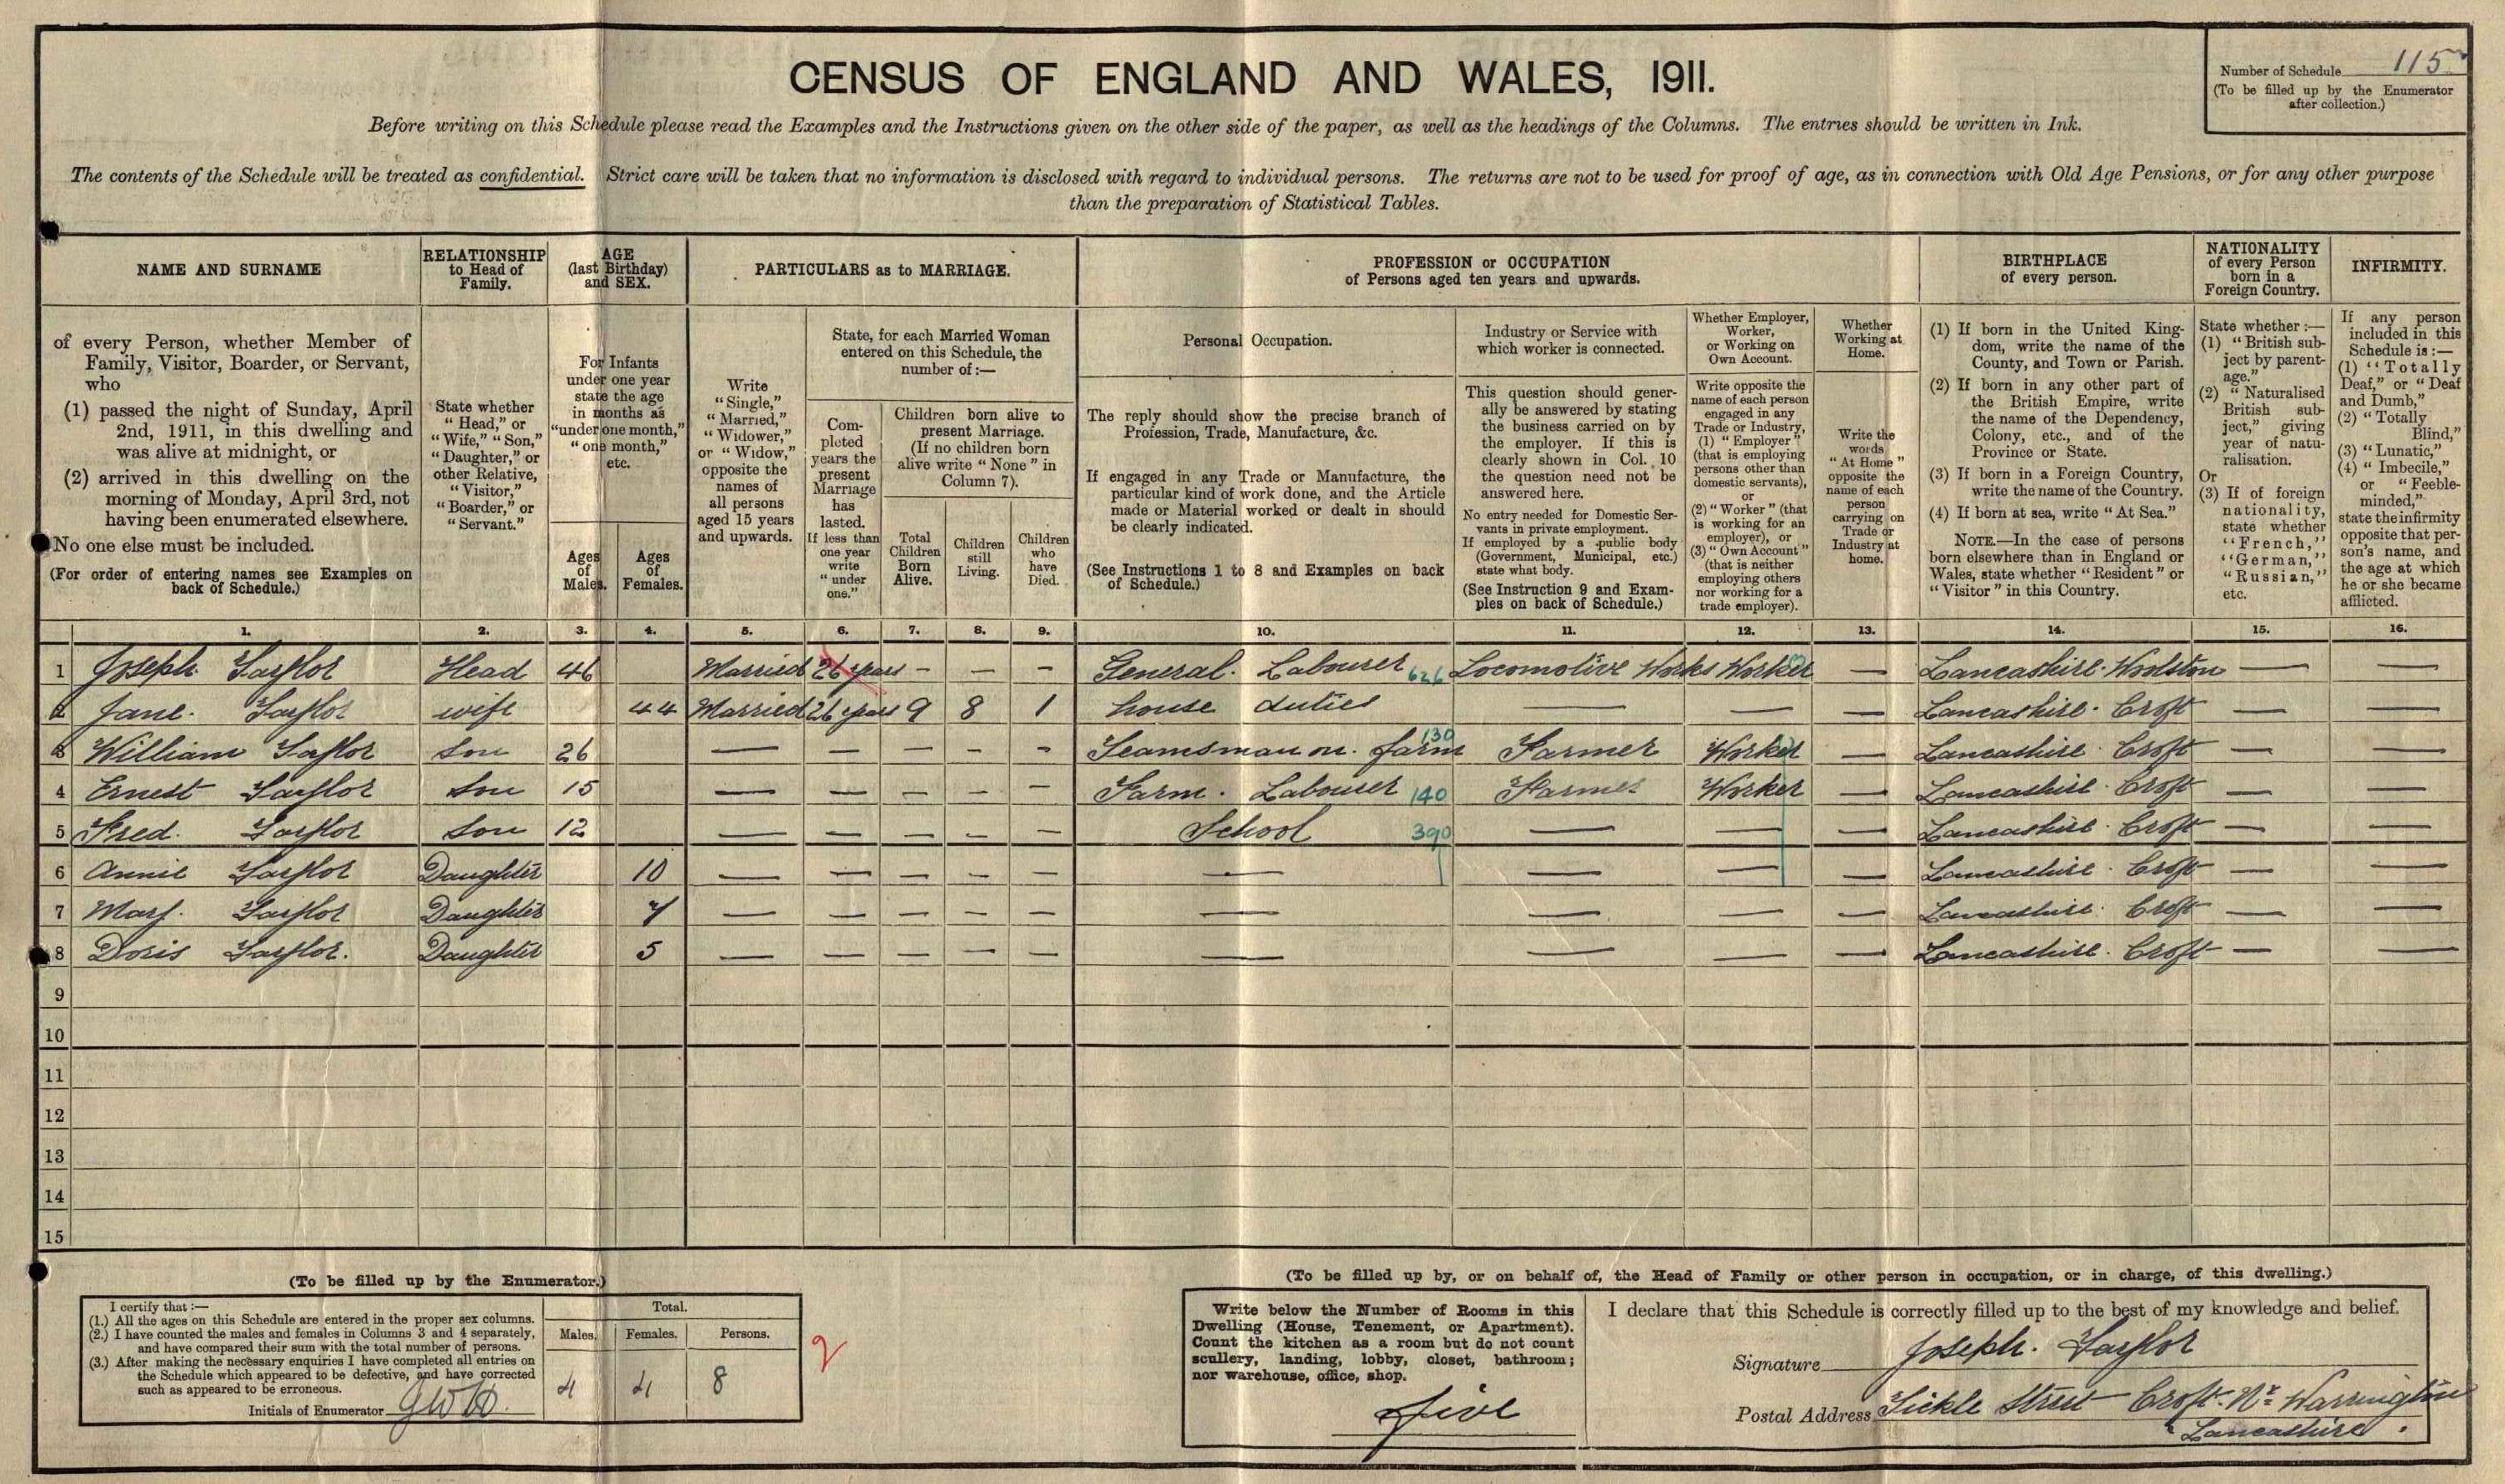 CENSUS OF ENGLAND AND WALES, 1911.
Number of Schedule 115
(To be filled up by the Enumerator
after collection.)
Before writing on this Schedule please read the Examples and the Instructions given on the other side of the paper, as well as the headings of the Columns. The entries should be written in Ink.
The contents of the Schedule will be treated as confidential. Strict care will be taken that no information is disclosed with regard to individual persons. The returns are not to be used for proof of age, as in connection with Old Age Pensions, or for any other purpose
than the preparation of Statistical Tables.
NAME AND SURNAME
of every Person, whether Member of
Family, Visitor, Boarder, or Servant,
who
(1) passed the night of Sunday, April
2nd, 1911, in this dwelling and
was alive at midnight, or
(2) arrived in this dwelling on the
morning of Monday, April 3rd, not
having been enumerated elsewhere.
No one else must be included.
(For order of entering names see Examples on
back of Schedule.)
RELATIONSHIP
to Head of
Family.
State whether
"Head," or
"Wife," "Son,"
"Daughter," or
other Relative,
"Visitor,"
"Boarder," or
"Servant."
AGE
(last Birthday)
and SEX.
For Infants
under one year
state the age
in months as
"under one month,"
"one month,"
etc.
Ages
of
Males.
Ages
of
Females.
PARTICULARS as to MARRIAGE.
Write
"Single,"
"Married,"
"Widower,"
or "Widow,"
opposite the
names of
all persons
aged 15 years
and upwards.
State, for each Married Woman
entered on this Schedule, the
number of:—
Com-
pleted
years the
present
Marriage
has
lasted.
If less than
one year
write
"under
one."
Children born alive to
present Marriage.
(If no children born
alive write "None" in
Column 7).
Total
Children
Born
Alive.
Children
still
Living.
Children
who
have
Died.
PROFESSION or OCCUPATION
of Persons aged ten years and upwards.
Personal Occupation.
The reply should show the precise branch of
Profession, Trade, Manufacture, &c.
If engaged in any Trade or Manufacture, the
particular kind of work done, and the Article
made or Material worked or dealt in should
be clearly indicated.
(See Instructions 1 to 8 and Examples on back
of Schedule.)
Industry or Service with
which worker is connected.
This question should gener-
ally be answered by stating
the business carried on by
the employer. If this is
clearly shown in Col. 10
the question need not be
answered here.
No entry needed for Domestic Ser-
vants in private employment.
If employed by a public body
(Government, Municipal, etc.)
state what body.
(See Instruction 9 and Exam-
ples on back of Schedule.)
Whether Employer,
Worker,
or Working on
Own Account.
Write opposite the
name of each person
engaged in any
Trade or Industry,
(1) "Employer"
(that is employing
persons other than
domestic servants),
or
(2) "Worker" (that
is working for an
employer), or
(3) "Own Account"
(that is neither
employing others
nor working for a
trade employer).
Whether
Working at
Home.
Write the
words
"At Home"
opposite the
name of each
person
carrying on
Trade or
Industry at
home.
BIRTHPLACE
of every person.
(1) If born in the United King-
dom, write the name of the
County, and Town or Parish.
(2) If born in any other part of
the British Empire, write
the name of the Dependency,
Colony, etc., and of the
Province or State.
(3) If born in a Foreign Country,
write the name of the Country.
(4) If born at sea, write "At Sea."
NOTE.—In the case of persons
born elsewhere than in England or
Wales, state whether "Resident" or
"Visitor" in this Country.
NATIONALITY
of every Person
born in a
Foreign Country.
State whether :—
(1) "British sub-
ject by parent-
age."
(2) "Naturalised
British sub-
ject," giving
year of natu-
ralisation.
Or
(3) If of foreign
nationality,
state whether
"French,"
"German,"
"Russian,"
etc.
INFIRMITY.
If any person
included in this
Schedule is:—
(1) "Totally
Deaf," or "Deaf
and Dumb,"
(2) "Totally
Blind,"
(3) "Lunatic,"
(4) "Imbecile,"
or "Feeble-
minded,"
state the infirmity
opposite that per-
son's name, and
the age at which
he or she became
afflicted.
1. 2. 3. 4. 5. 6. 7. 8. 9. 10. 11. 12. 13. 14. 15. 16.
1 Joseph Taylor Head 46 Married 26 years – — – General. Labourer 626 Locomotive Works Worker — Lancashire. Woolston — —
2 Jane. Taylor wife 44 Married 26 years 9 8 1 house duties — — — Lancashire. Croft — —
3 William Taylor Son 26 — — – – – Teamsman on. farm 130 Farmer Worker — Lancashire. Croft — —
4 Ernest Taylor Son 15 — — — – – Farm. Labourer 140 Farmer Worker — Lancashire. Croft — —
5 Fred. Taylor Son 12 — — — – — School 390 — — — Lancashire. Croft — —
6 Annie Taylor Daughter 10 — — — – — — — — — Lancashire. Croft — —
7 Mary. Taylor Daughter 7 — — — — — — — — — Lancashire. Croft — —
8 Doris Taylor. Daughter 5 — — — — — — — — — Lancashire. Croft — —
9
10
11
12
13
14
15
(To be filled up by the Enumerator.)
I certify that:—
(1.) All the ages on this Schedule are entered in the proper sex columns.
(2.) I have counted the males and females in Columns 3 and 4 separately,
and have compared their sum with the total number of persons.
(3.) After making the necessary enquiries I have completed all entries on
the Schedule which appeared to be defective, and have corrected
such as appeared to be erroneous.
Initials of Enumerator
Total.
Males. Females. Persons.
4 4 8
2
(To be filled up by, or on behalf of, the Head of Family or other person in occupation, or in charge, of this dwelling.)
Write below the Number of Rooms in this
Dwelling (House, Tenement, or Apartment).
Count the kitchen as a room but do not count
scullery, landing, lobby, closet, bathroom;
nor warehouse, office, shop.
five
I declare that this Schedule is correctly filled up to the best of my knowledge and belief.
Signature Joseph. Taylor
Postal Address Sickle Street Croft. Nr Warrington
Lancashire.